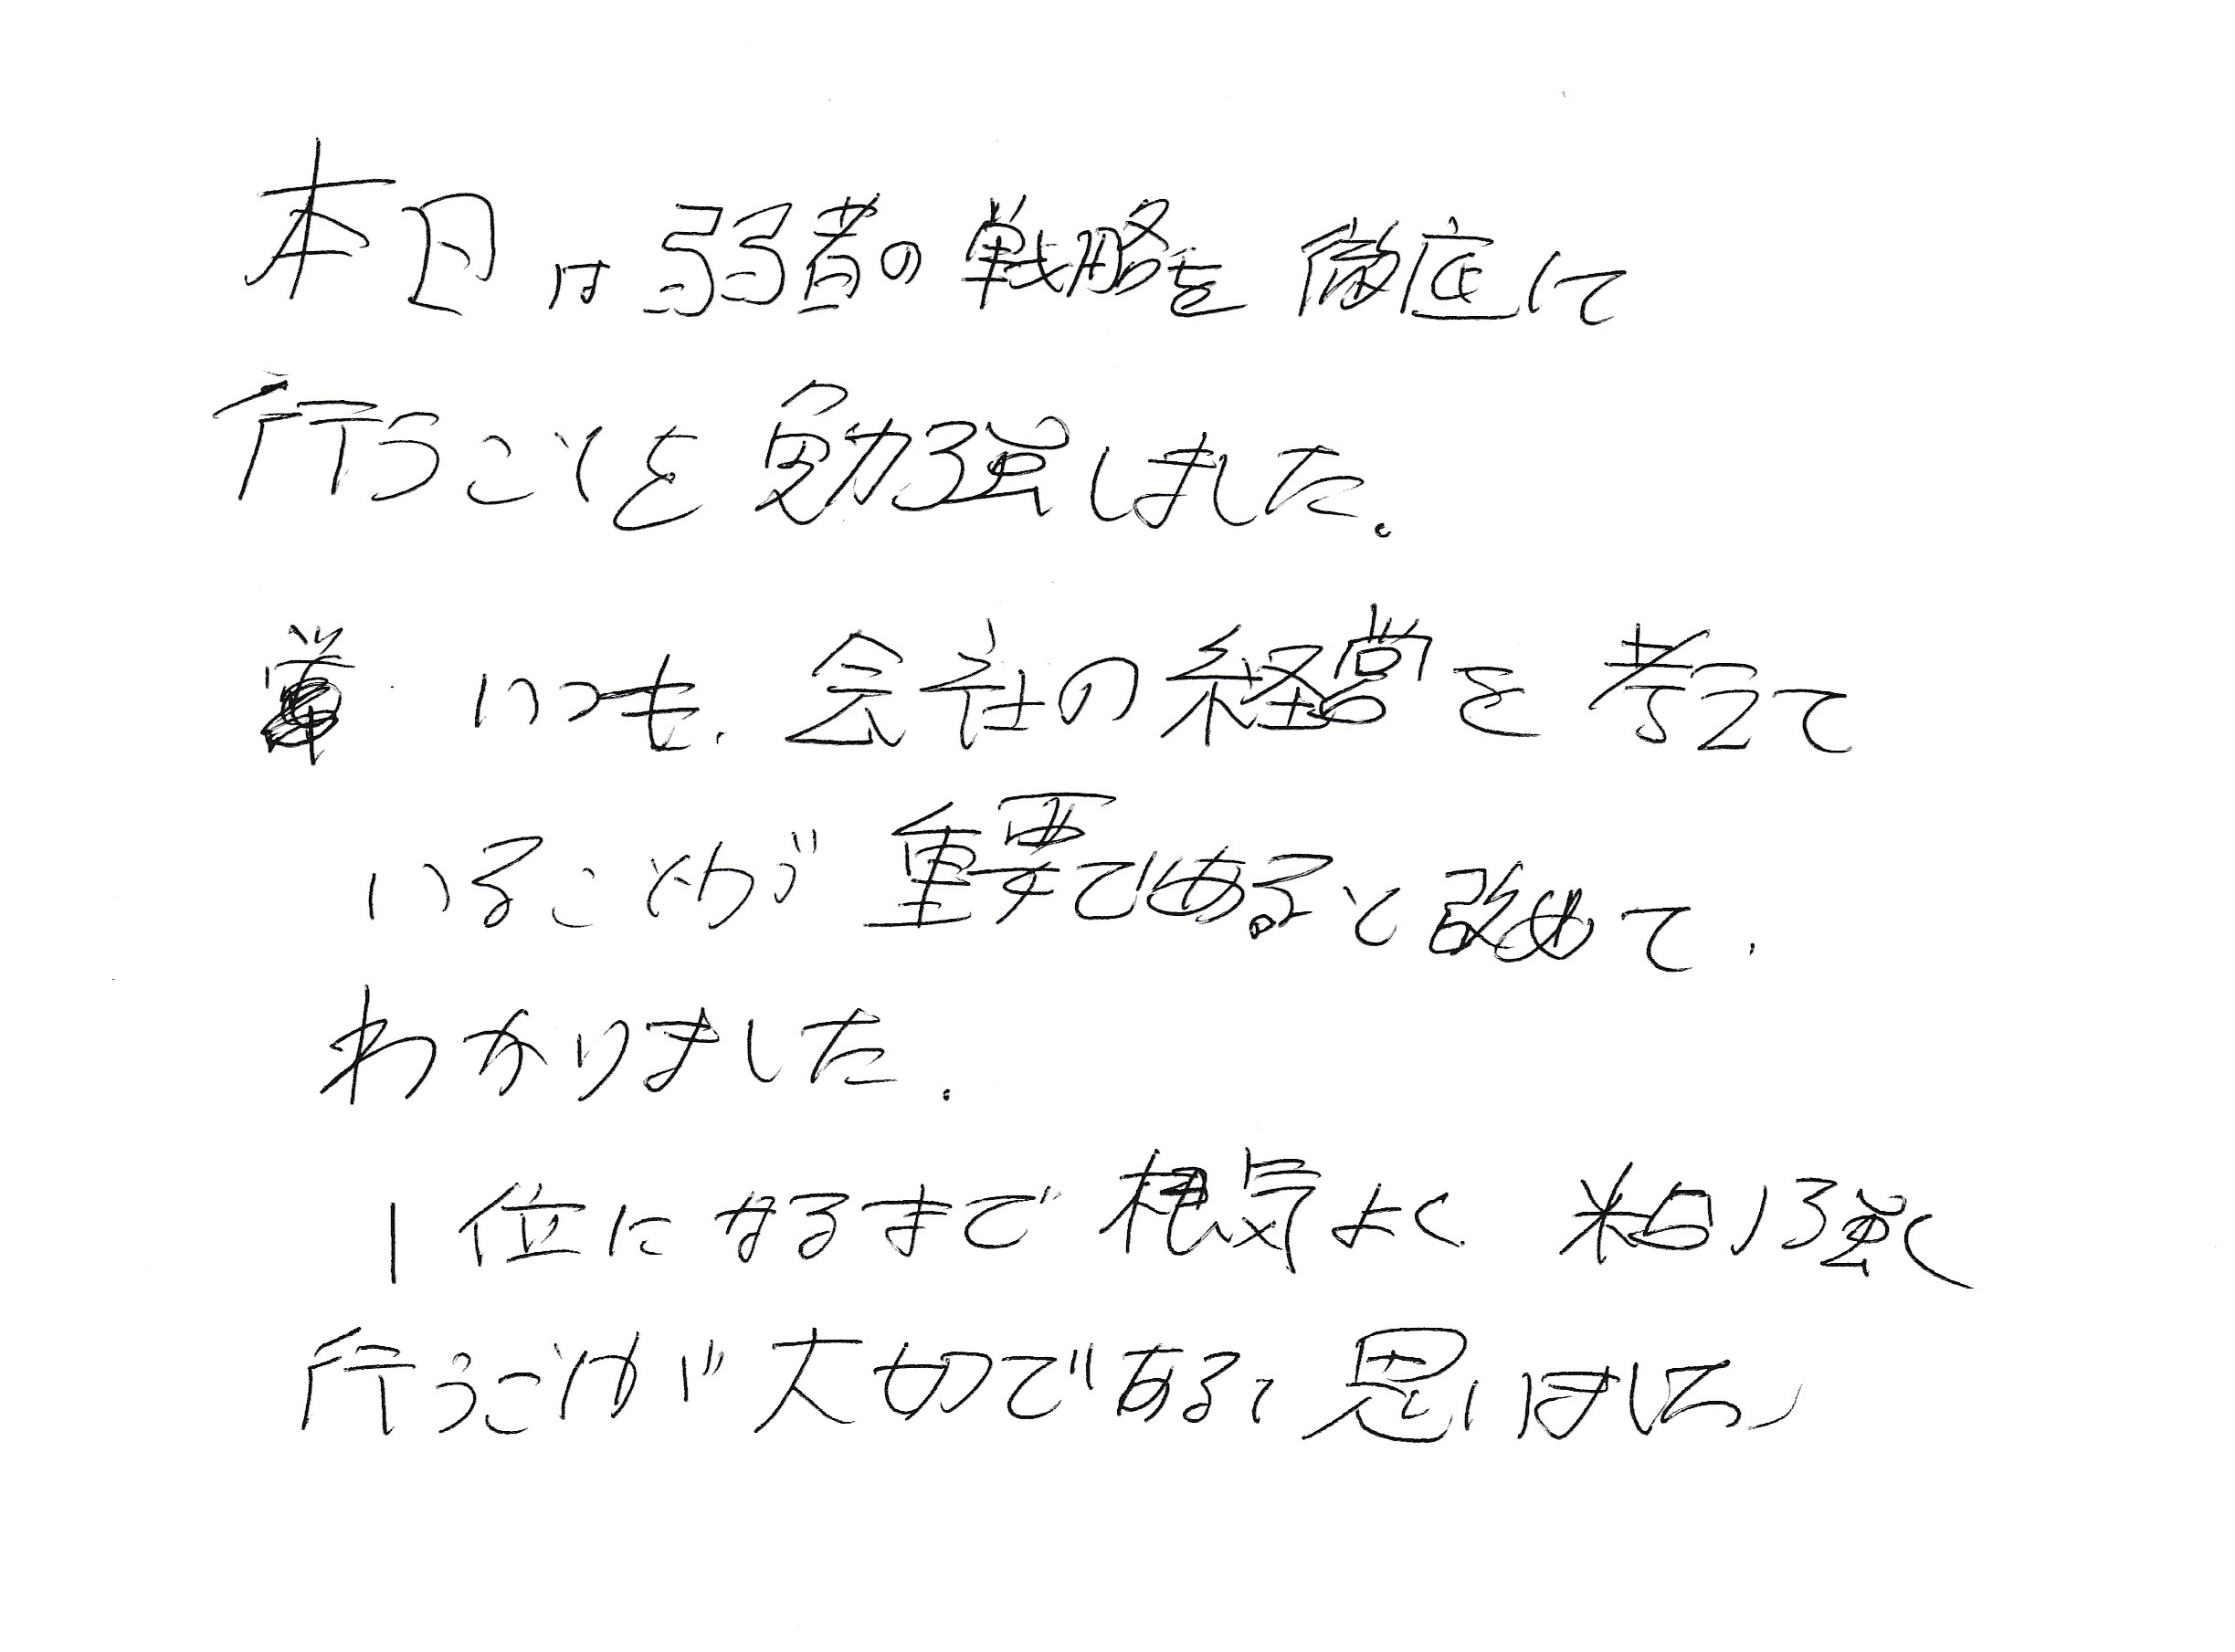 本日は弱者の戦略を徹底して
行うことを勉強しました。
いつも、会社の経営を考えて
いることが重要であると改めて、
わかりました。
1位になるまで根気よく粘り強く
行うことが大切であると思いました